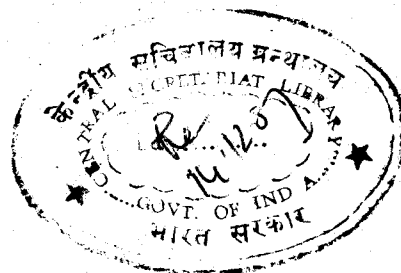 केन्द्रीय सचिवालय ग्रन्थालय
CENTRAL SECRETARIAT LIBRARY
14.12.07
GOVT. OF INDIA
भारत सरकार